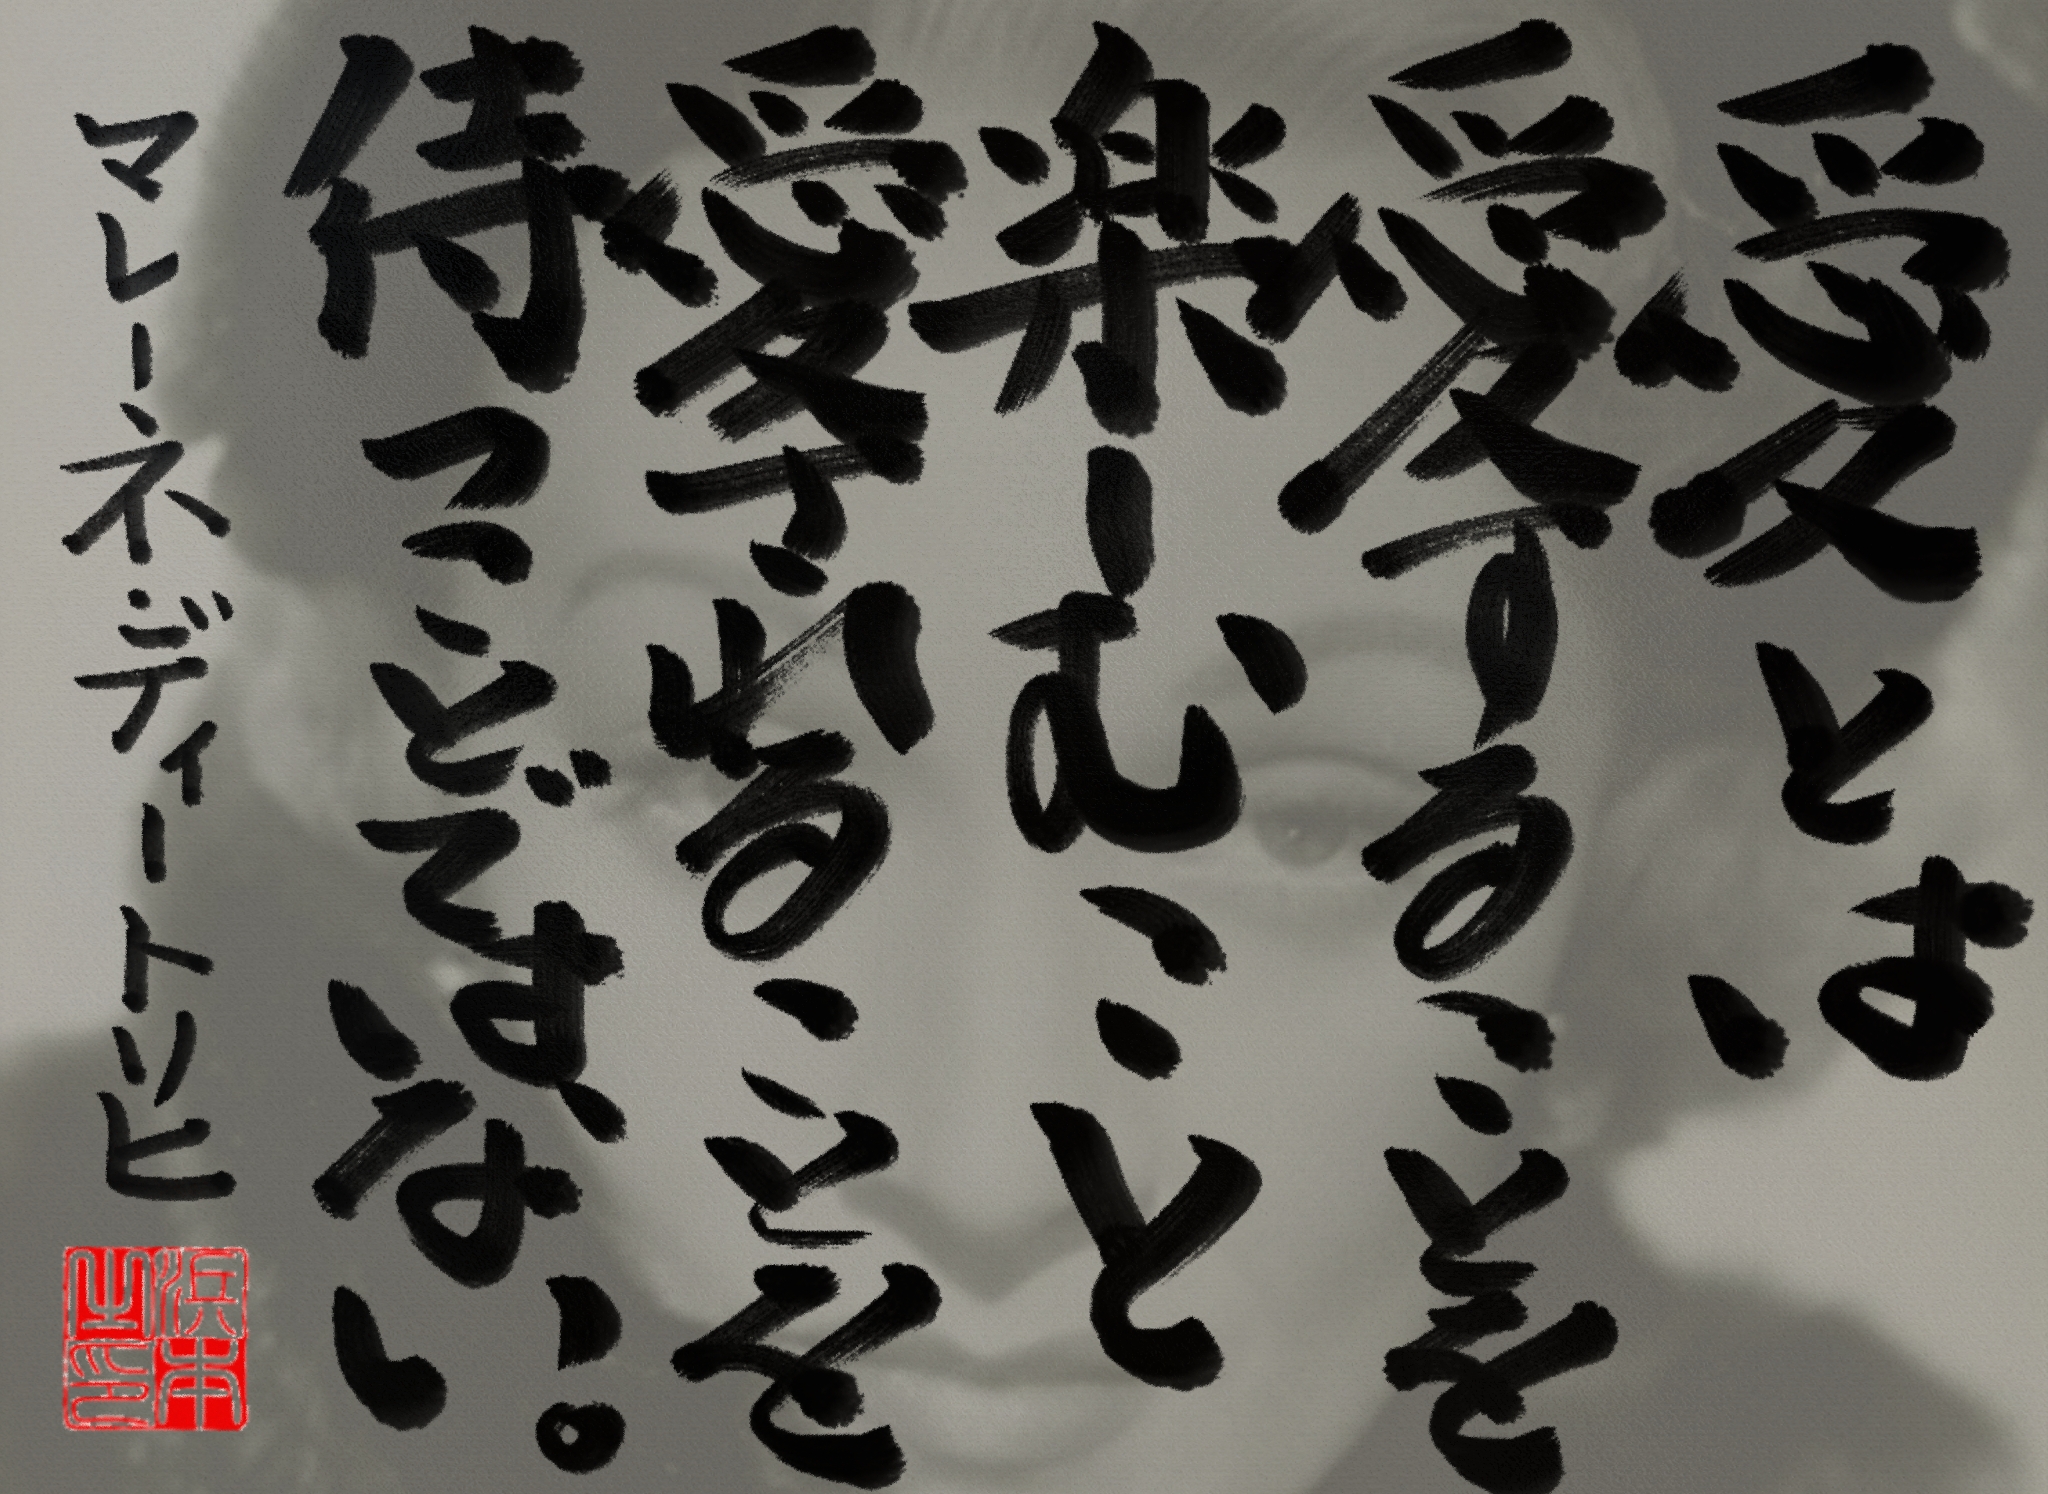 愛とは、
愛することを
楽しむことで
愛されることを
待つことではない。
マレーネ・ディートリヒ
浜本之印